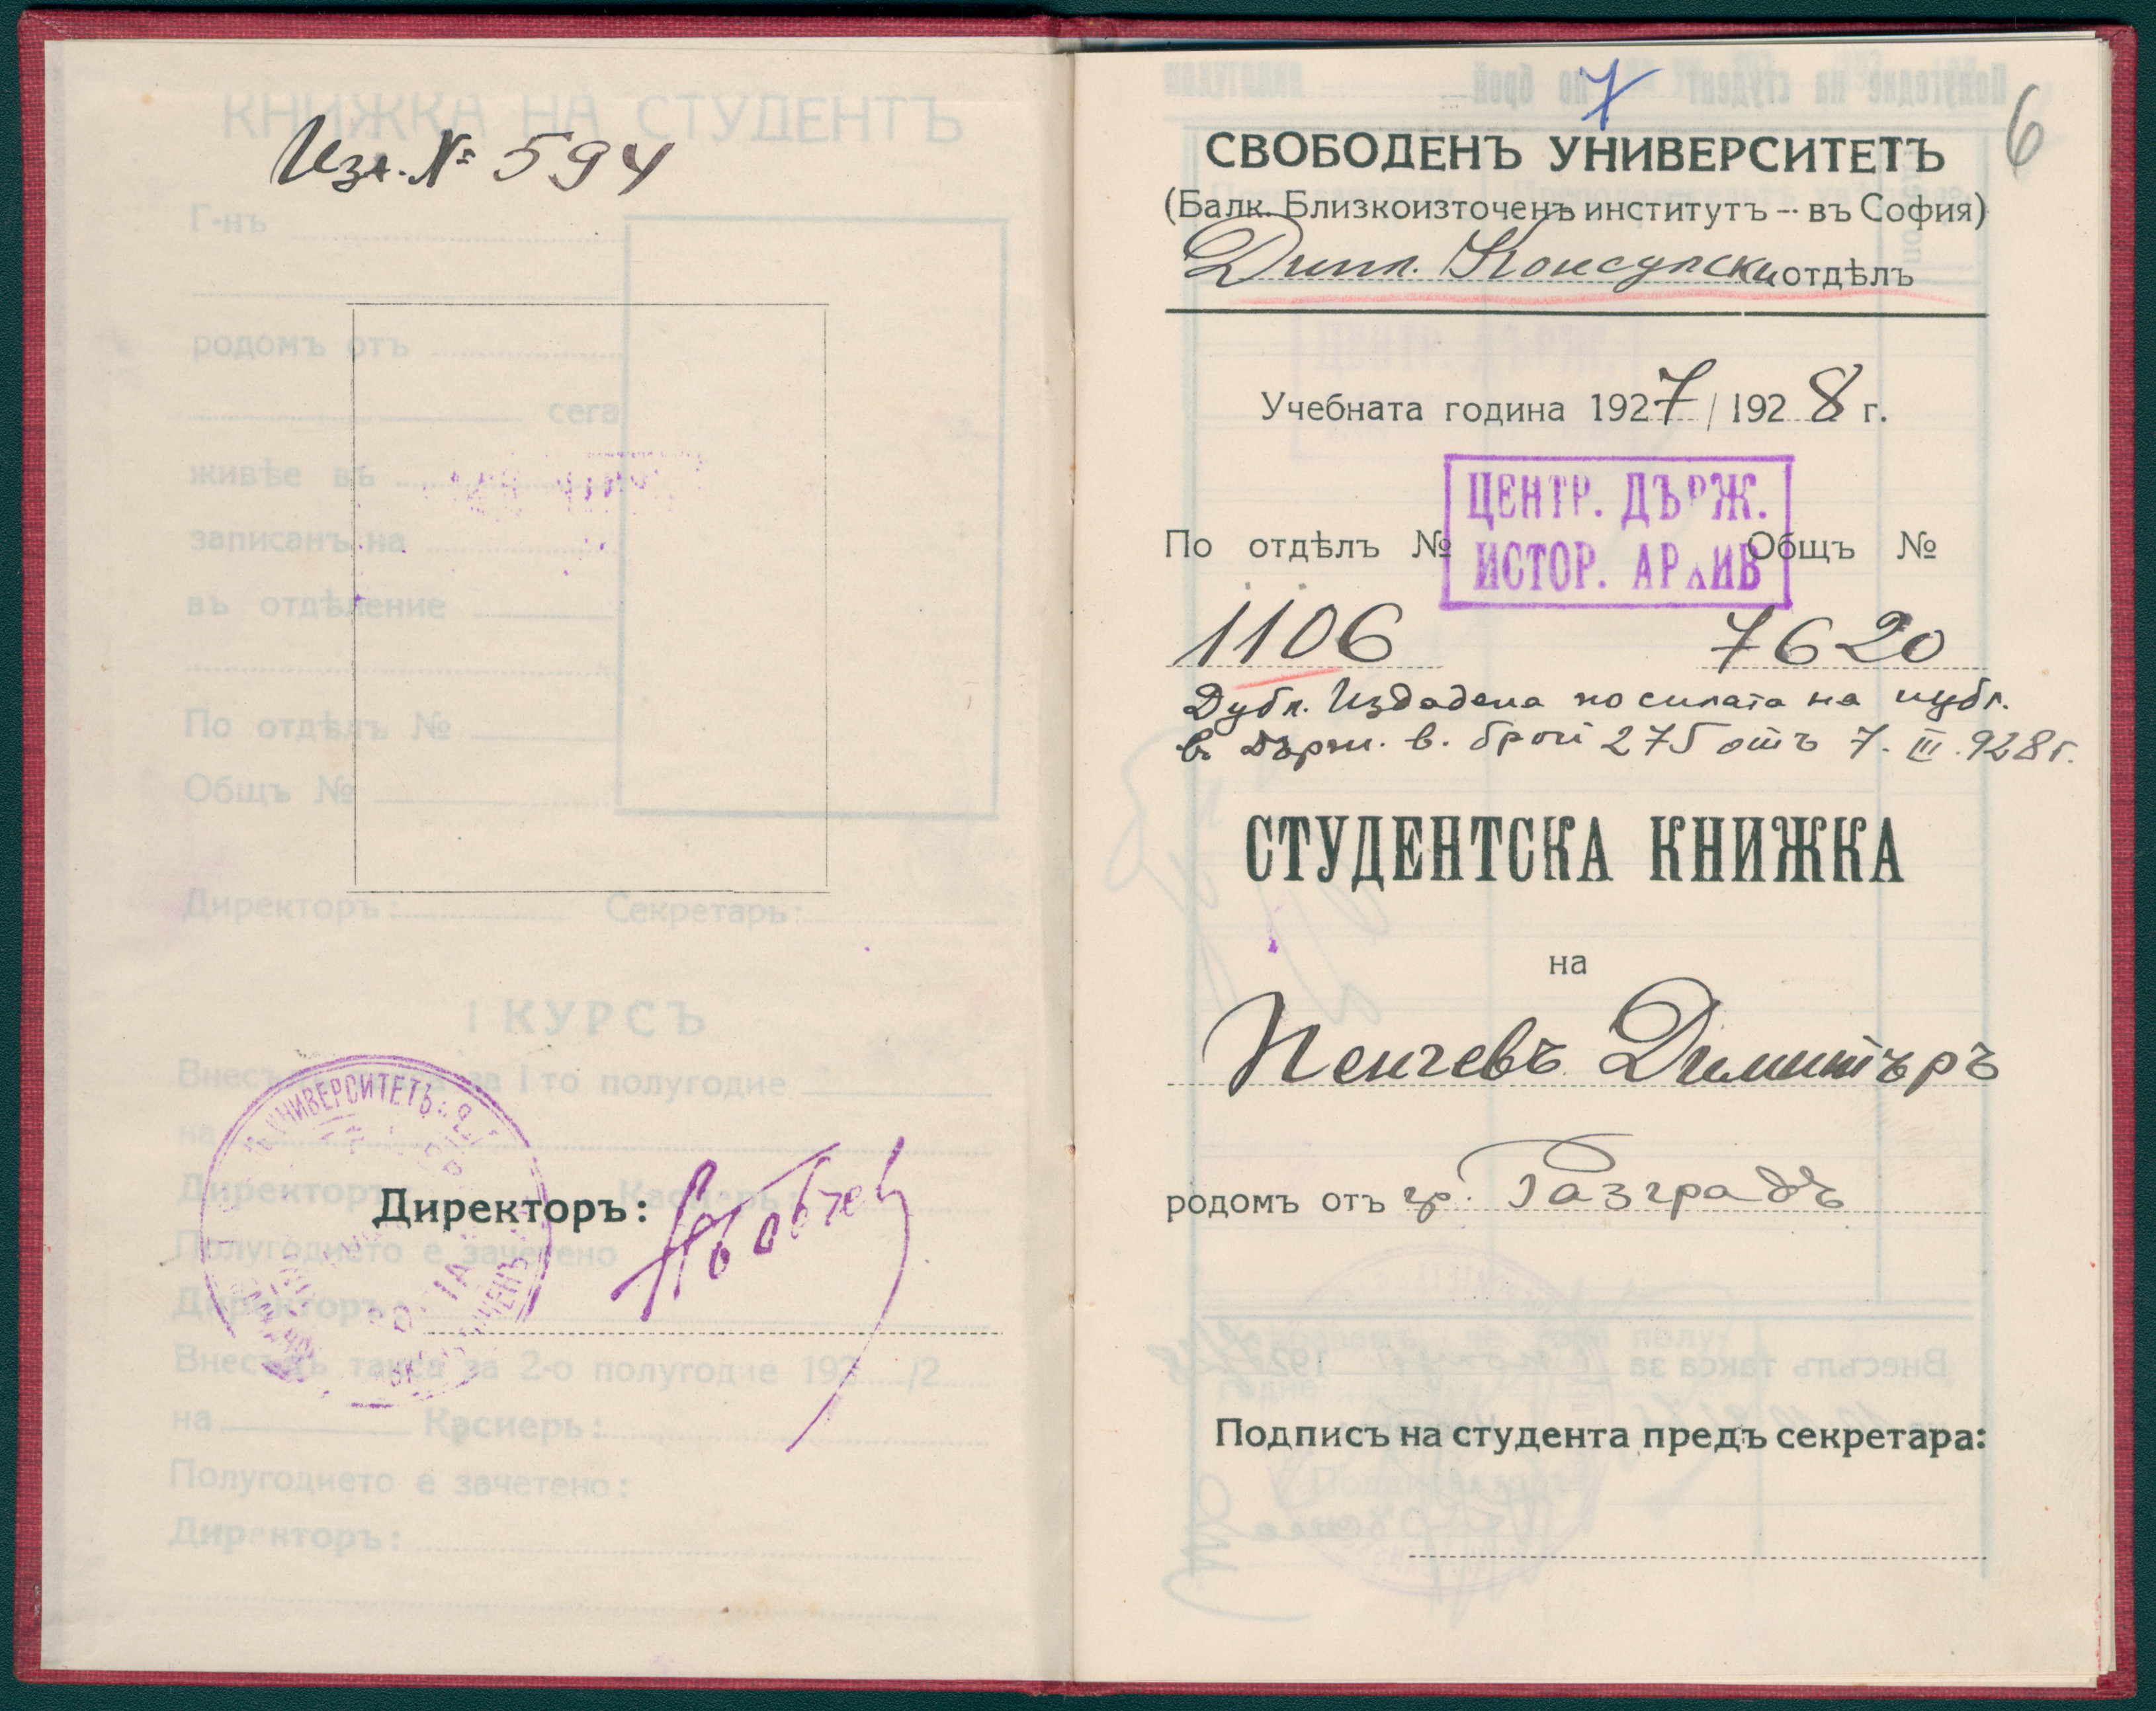 Изх. № 594
Директоръ:
УНИВЕРСИТЕТЪ
7
6
СВОБОДЕНЪ УНИВЕРСИТЕТЪ
(Балк. Близкоизточенъ институтъ -- въ София)
Дипл. Консулски отдѣлъ
Учебната година 1927 / 1928 г.
ЦЕНТР. ДЪРЖ.
ИСТОР. АРХИВ
По отдѣлъ № Общъ №
1106 7620
Дубл. Издадена по силата на публ.
в Държ. в. брой 275 отъ 7. III. 928 г.
СТУДЕНТСКА КНИЖКА
на
Пенчевъ Димитъръ
родомъ отъ гр. Разградъ
Подписъ на студента предъ секретара: